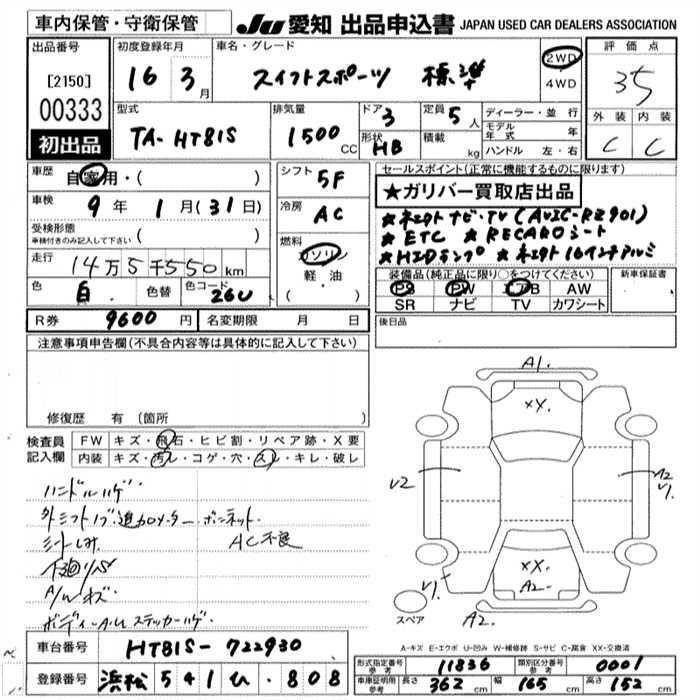 車内保管・守衛保管 JU 愛知 出品申込書 JAPAN USED CAR DEALERS ASSOCIATION
出品番号 初度登録年月 車名・グレード 評価点
[2150] 16 3月 スイフトスポーツ 標準 2WD 4WD 35
00333 外装 内装
初出品 C C
型式 排気量 ドア 定員 ディーラー・並行
TA-HT81S 1500CC 3 5人 モデル年式 年
形状 HB 積載 kg ハンドル 左・右
車歴 自家用・( ) シフト 5F セールスポイント(正常に機能するものに限ります)
★ガリバー買取店出品
車検 9年 1月(31日) 冷房 AC ★ネオクト ナビ・TV(AVIC-RZ901)
受検形態 車検付きのみ記入して下さい ( ) ★ETC ★RECAROシート
走行 14万5千550km 燃料 ガソリン 軽・油 ( ) ★HIDランプ ★ネオクト16インチアルミ
色 白 色替 色コード 26U 装備品(純正品に限り○をつけてください) 新車保証書
PS PW エアB AW
SR ナビ TV カワシート
R券 9600円 名変期限 月 日 後日品
注意事項申告欄(不具合内容等は具体的に記入して下さい)
修復歴 有(箇所
検査員記入欄 FW キズ・飛石・ヒビ割・リペア跡・X要
内装 キズ・汚レ・コゲ・穴・スレ・キレ・破レ
ハンドルハゲ
外シフトノブ・追加メーター・ボンネット・
シートしみ AC不良
下廻りサビ
A/Wキズ
ボディーA・U ステッカーハゲ
A1.
XX.
V2 A2 V1.
XX.
A2-
V1.
スペア A2.
A-キズ E-エクボ U-凹み W-補修跡 S-サビ C-腐食 XX-交換済
車台番号 HT81S-722930 形式指定番号 参考 11836 類別区分番号 参考 0001
登録番号 浜松 541 ひ・808 車庫証明用 参考 長さ 362cm 幅 165cm 高さ 152cm